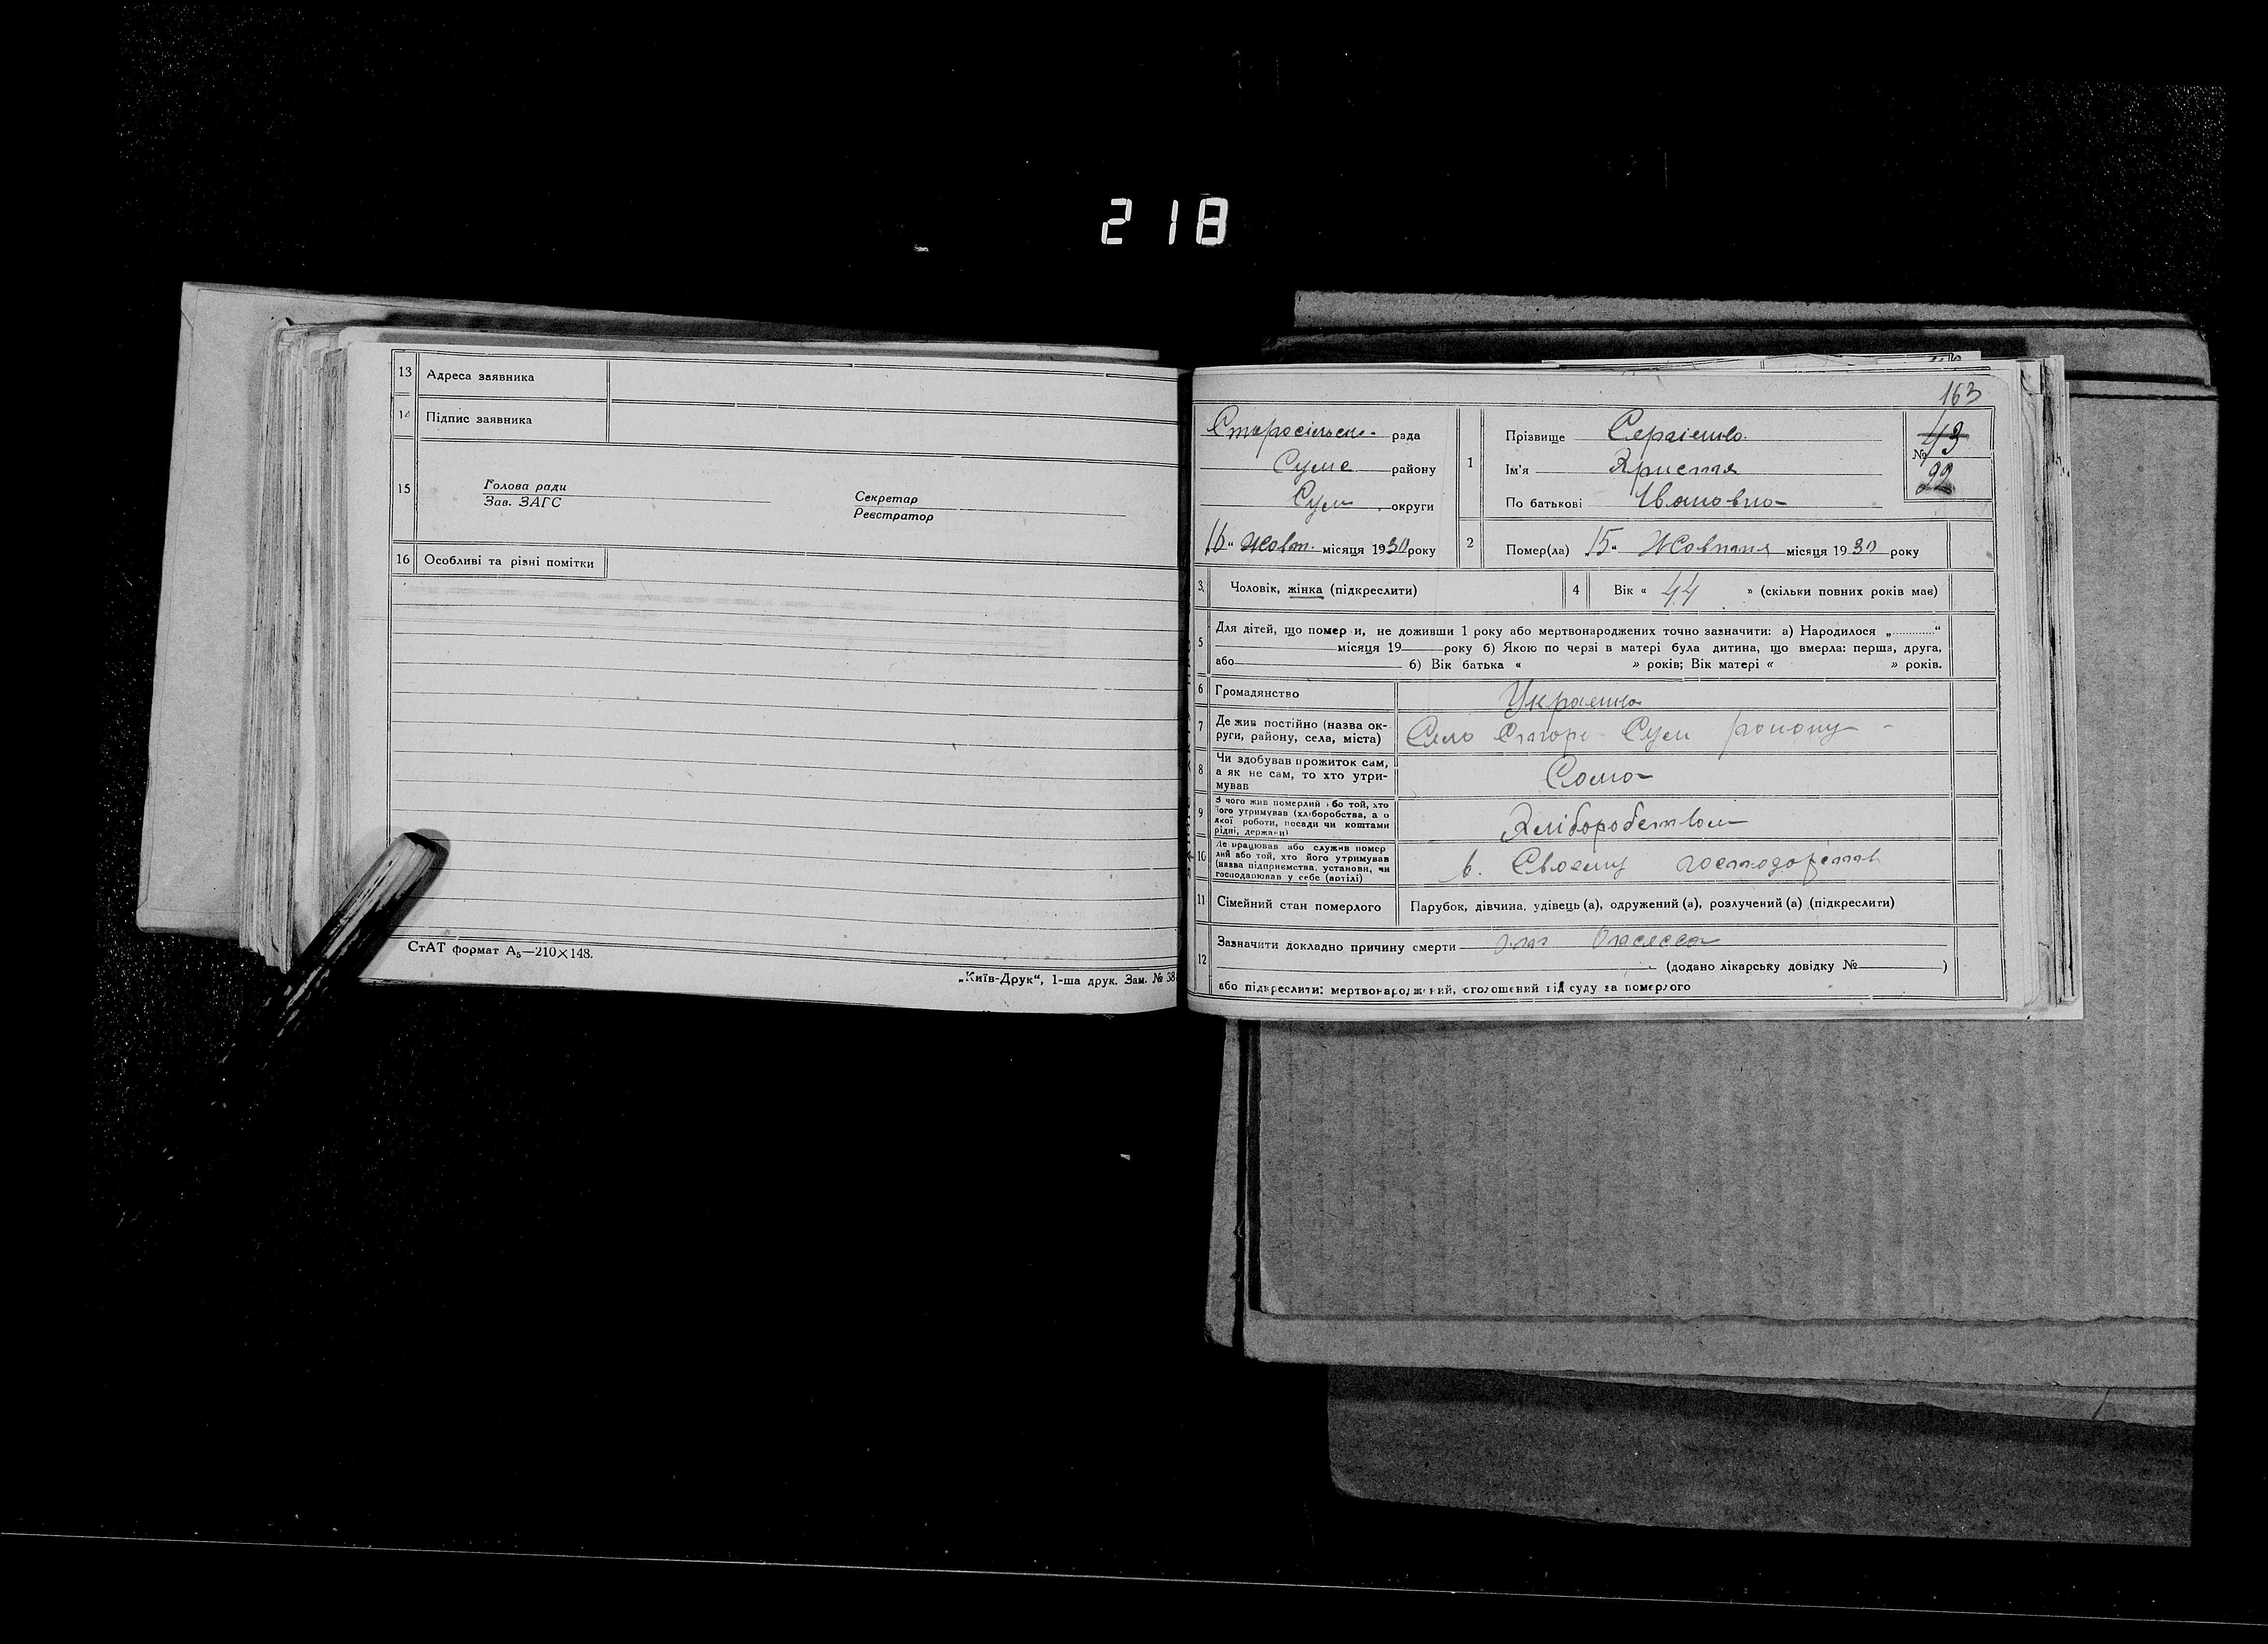 218
13 Адреса заявника
14 Підпис заявника
15
Голова ради
Зав. ЗАГС
Секретар
Реєстратор
16 Особливі та різні помітки
СтАТ формат А₅—210×148.
„Київ-Друк“, 1-ша друк. Зам. № 38
163
рада
району
Сум округи
16 “ Жовт. місяця 1930 року
1
Прізвище
Ім'я Христя
По батькові Ивановна
43
№
99
2 Помер(ла) 15 “ Жовтня місяця 1930 року
3. Чоловік, жінка (підкреслити)
4 Вік « 44 » (скільки повних років має)
5 Для дітей, що помер и, не доживши 1 року або мертвонароджених точно зазначити: а) Народилося „............“
місяця 19 року б) Якою по черзі в матері була дитина, що вмерла: перша, друга,
або б) Вік батька « » років; Вік матері « » років.
6 Громадянство Украинка
7 Де жив постійно (назва ок-
руги, району, села, міста) Село Сум району
8 Чи здобував прожиток сам,
а як не сам, то хто утри-
мував Сама
9 З чого жив померлий або той, хто
його утримував (хліборобства, а о
якої роботи, посади чи коштами
рідні, держави) Хліборобством
10 Де працював або служив помер
лий або той, хто його утримував
(назва підприємства, установи, чи
господарював у себе (артілі) в. Своему
11 Сімейний стан померлого Парубок, дівчина, удівець (а), одружений (а), розлучений (а) (підкреслити)
12 Зазначити докладно причину смерти
(додано лікарську довідку № )
або підкреслити: мертвонароджений, оголошений від суду за померлого